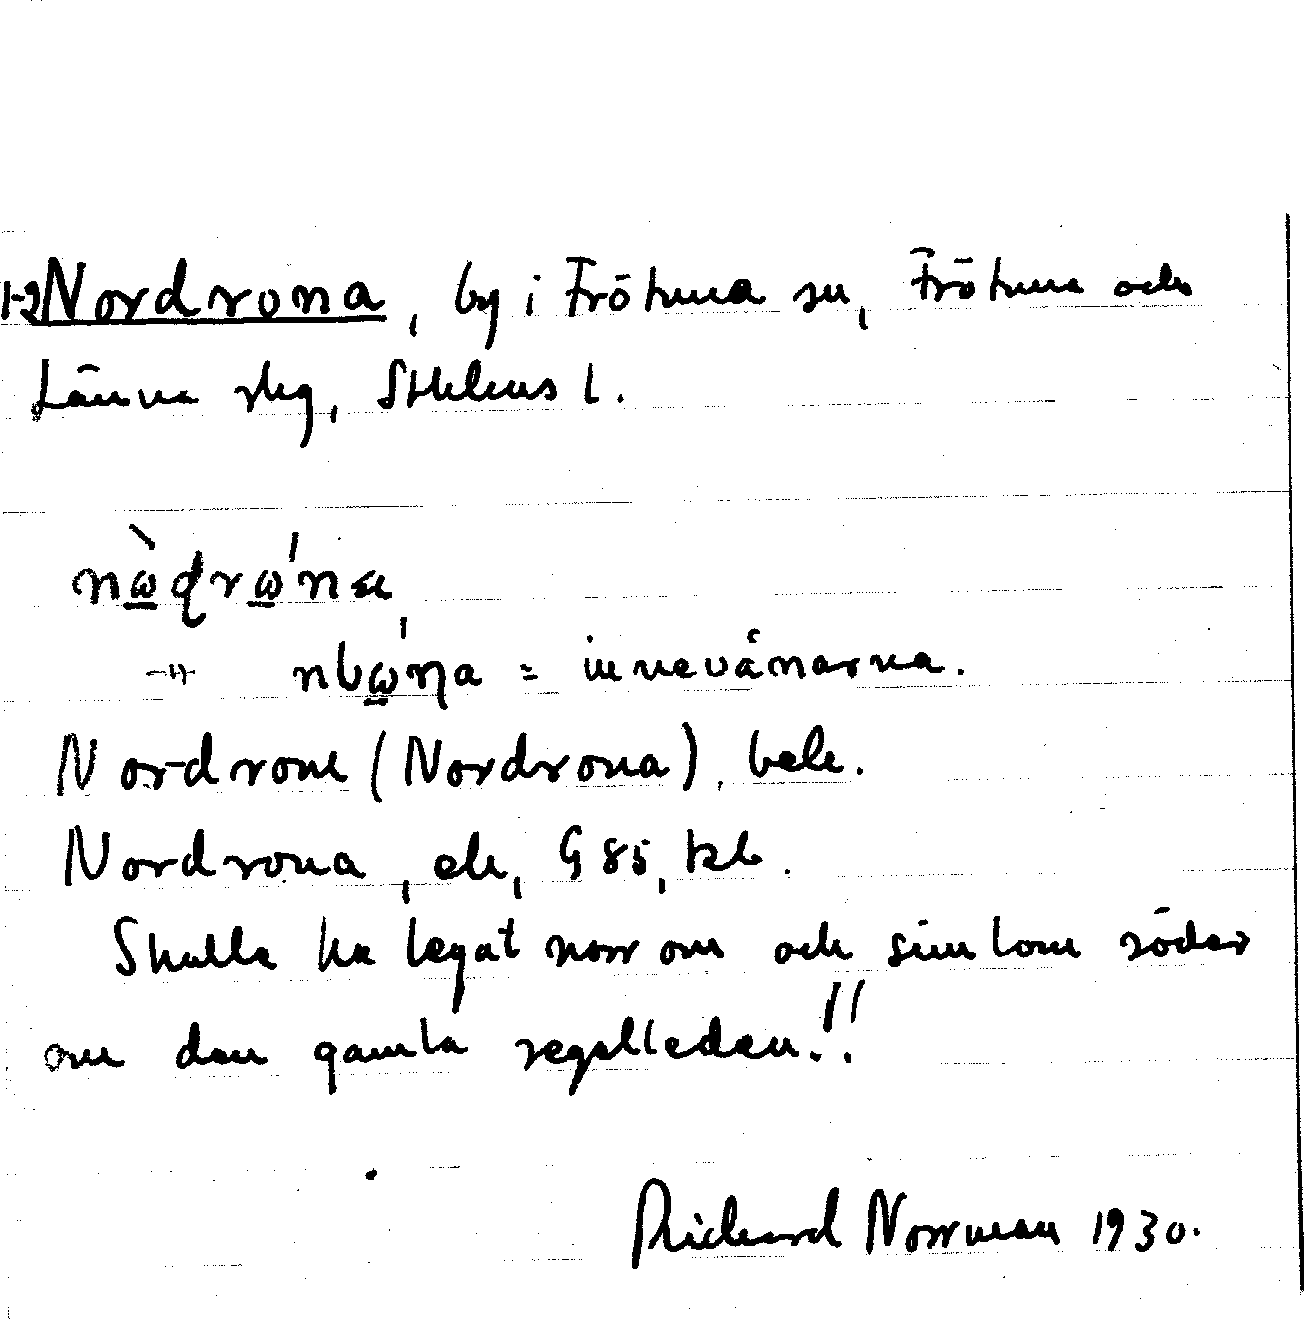 1-2 Nordrona, by i Frötuna sn, Frötuna och
Länna skg, Sthlms l.
nὼ̲ḍrώ̲na
-"- nbώ̲ŋa = innevånarna.
Nordrone (Nordrona), bebo.
Nordrona, ek, G 85, tkb.
Skulle ha legat norr om och sim lom söder
om den gamla segelleden!!
Richard Norrman 1930.